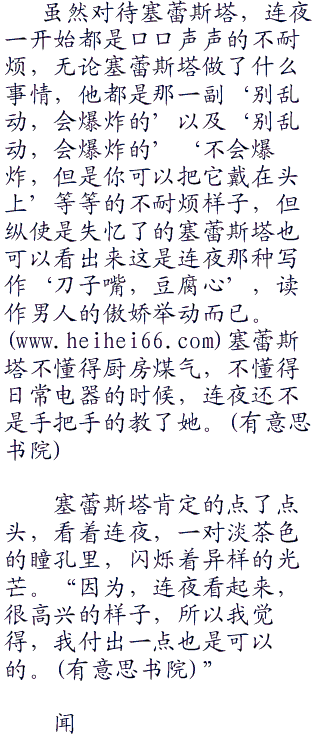 虽然对待塞蕾斯塔，连夜
一开始都是口口声声的不耐
烦，无论塞蕾斯塔做了什么
事情，他都是那一副‘别乱
动，会爆炸的’以及‘别乱
动，会爆炸的’‘不会爆
炸，但是你可以把它戴在头
上’等等的不耐烦样子，但
纵使是失忆了的塞蕾斯塔也
可以看出来这是连夜那种写
作‘刀子嘴，豆腐心’，读
作男人的傲娇举动而已。
(www.heihei66.com)塞蕾斯
塔不懂得厨房煤气，不懂得
日常电器的时候，连夜还不
是手把手的教了她。(有意思
书院)
塞蕾斯塔肯定的点了点
头，看着连夜，一对淡茶色
的瞳孔里，闪烁着异样的光
芒。“因为，连夜看起来，
很高兴的样子，所以我觉
得，我付出一点也是可以
的。(有意思书院)”
闻